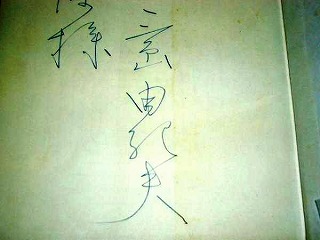 三島由紀夫
様